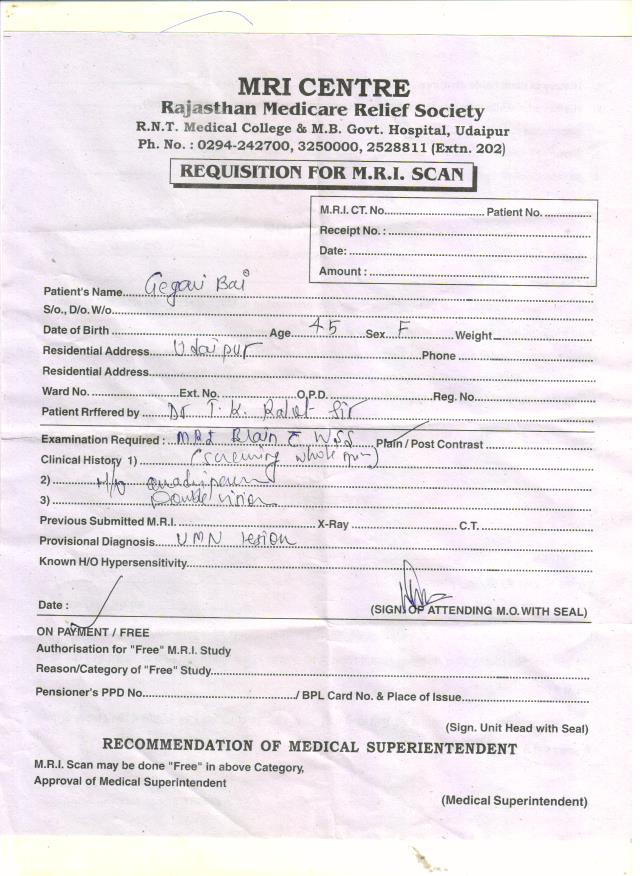 MRI CENTRE
Rajasthan Medicare Relief Society
R.N.T. Medical College & M.B. Govt. Hospital, Udaipur
Ph. No. : 0294-242700, 3250000, 2528811 (Extn. 202)
REQUISITION FOR M.R.I. SCAN
M.R.I. CT. No. Patient No.
Receipt No. :
Date:
Amount :
Patient's Name Gegari Bai
S/o., D/o. W/o
Date of Birth Age 45 Sex F Weight
Residential Address Udaipur Phone
Residential Address
Ward No. Ext. No. O.P.D. Reg. No.
Patient Rrffered by Dr T. K. Sir
Examination Required : MRI Brain WSS Plain / Post Contrast
Clinical History 1) (screening whole
2) H/o
3) Double vision
Previous Submitted M.R.I. X-Ray C.T.
Provisional Diagnosis UMN lesion
Known H/O Hypersensitivity
Date :
(SIGN. OF ATTENDING M.O. WITH SEAL)
ON PAYMENT / FREE
Authorisation for "Free" M.R.I. Study
Reason/Category of "Free" Study
Pensioner's PPD No. / BPL Card No. & Place of Issue
(Sign. Unit Head with Seal)
RECOMMENDATION OF MEDICAL SUPERIENTENDENT
M.R.I. Scan may be done "Free" in above Category,
Approval of Medical Superintendent
(Medical Superintendent)